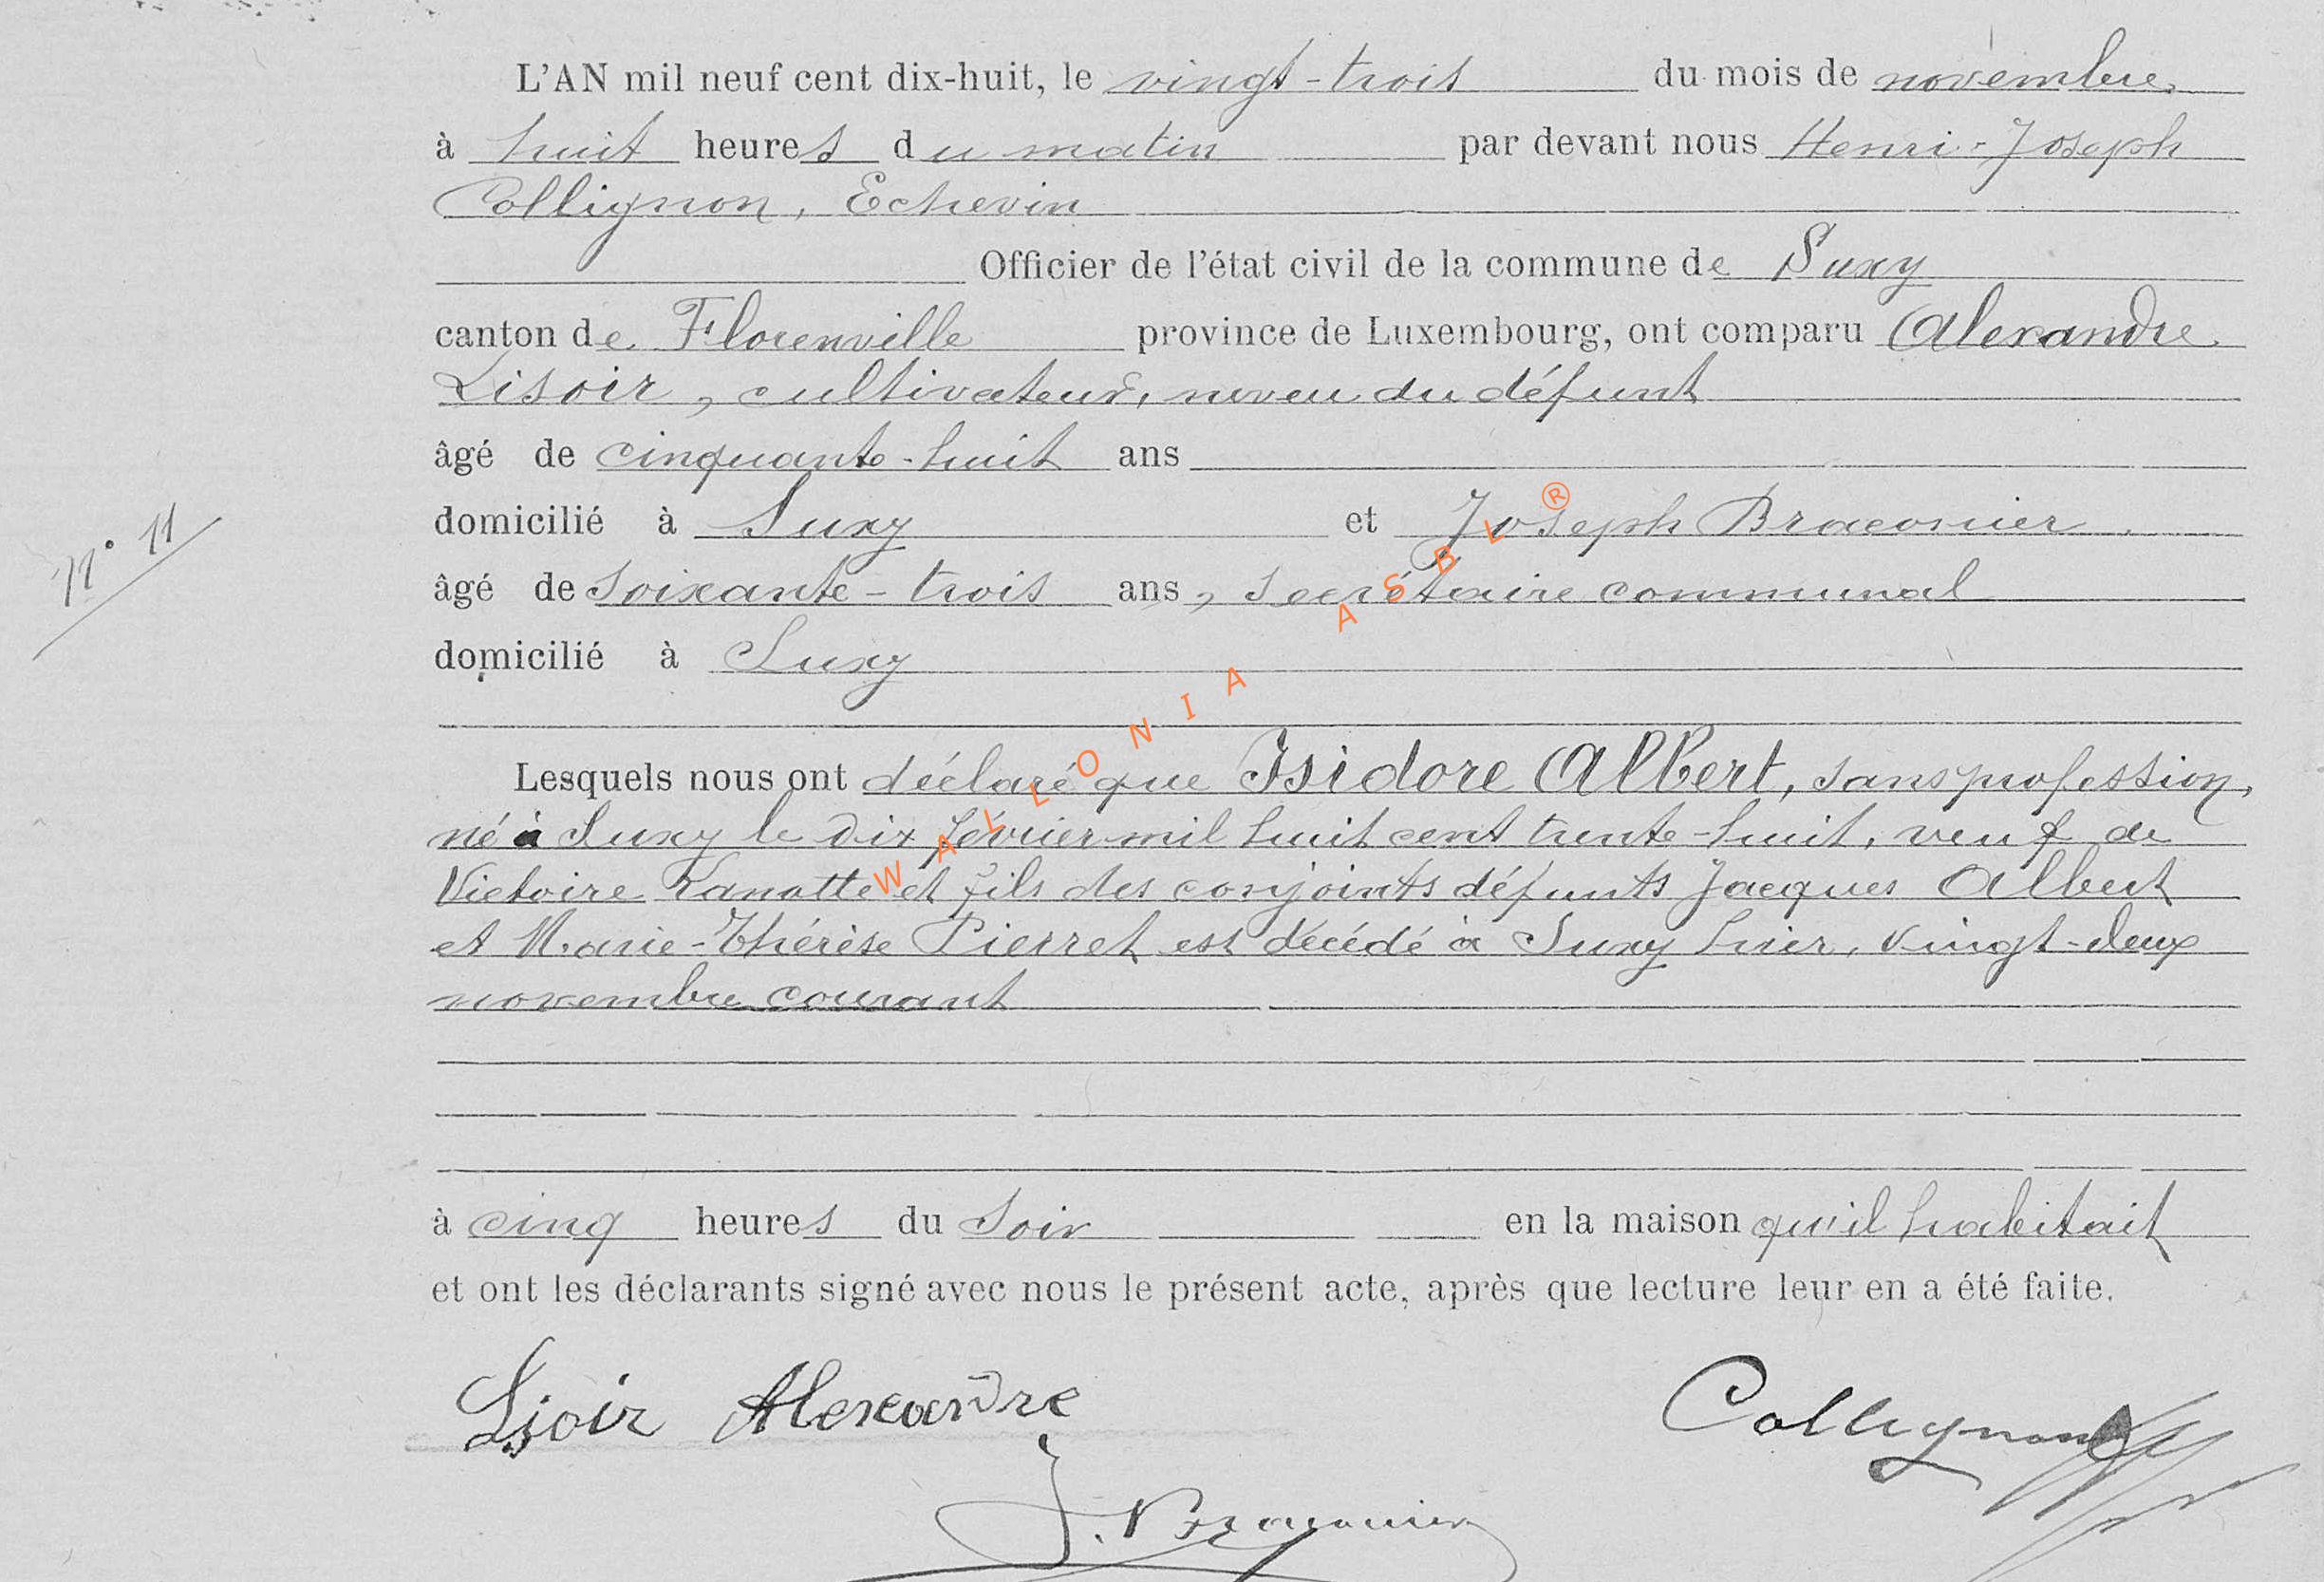 L'AN mil neuf cent dix-huit, le vingt-trois du mois de novembre,
à huit heures du matin par devant nous Henri-Joseph
Collignon, Echevin
Officier de l'état civil de la commune de Suxy
canton de Florenville province de Luxembourg, ont comparu Alexandre
Lisoir, cultivateur, neveu du défunt
âgé de cinquante-huit ans
domicilié à Suxy et Joseph Braconier,
N° 11
âgé de soixante-trois ans, secrétaire communal
domicilié à Suxy
Lesquels nous ont déclaré que Isidore Albert, sans profession,
né à Suxy le dix février mil huit cent trente-huit, veuf de
Victoire Lanotte et fils des conjoints défunts Jacques Albert
et Marie-Thérèse Pierret est décédé à Suxy hier, vingt-deux
novembre courant
à cinq heures du soir en la maison qu'il habitait
et ont les déclarants signé avec nous le présent acte, après que lecture leur en a été faite.
Lisoir Alexandre Collignon
J. Braconier
WALLONIA ASBL ®